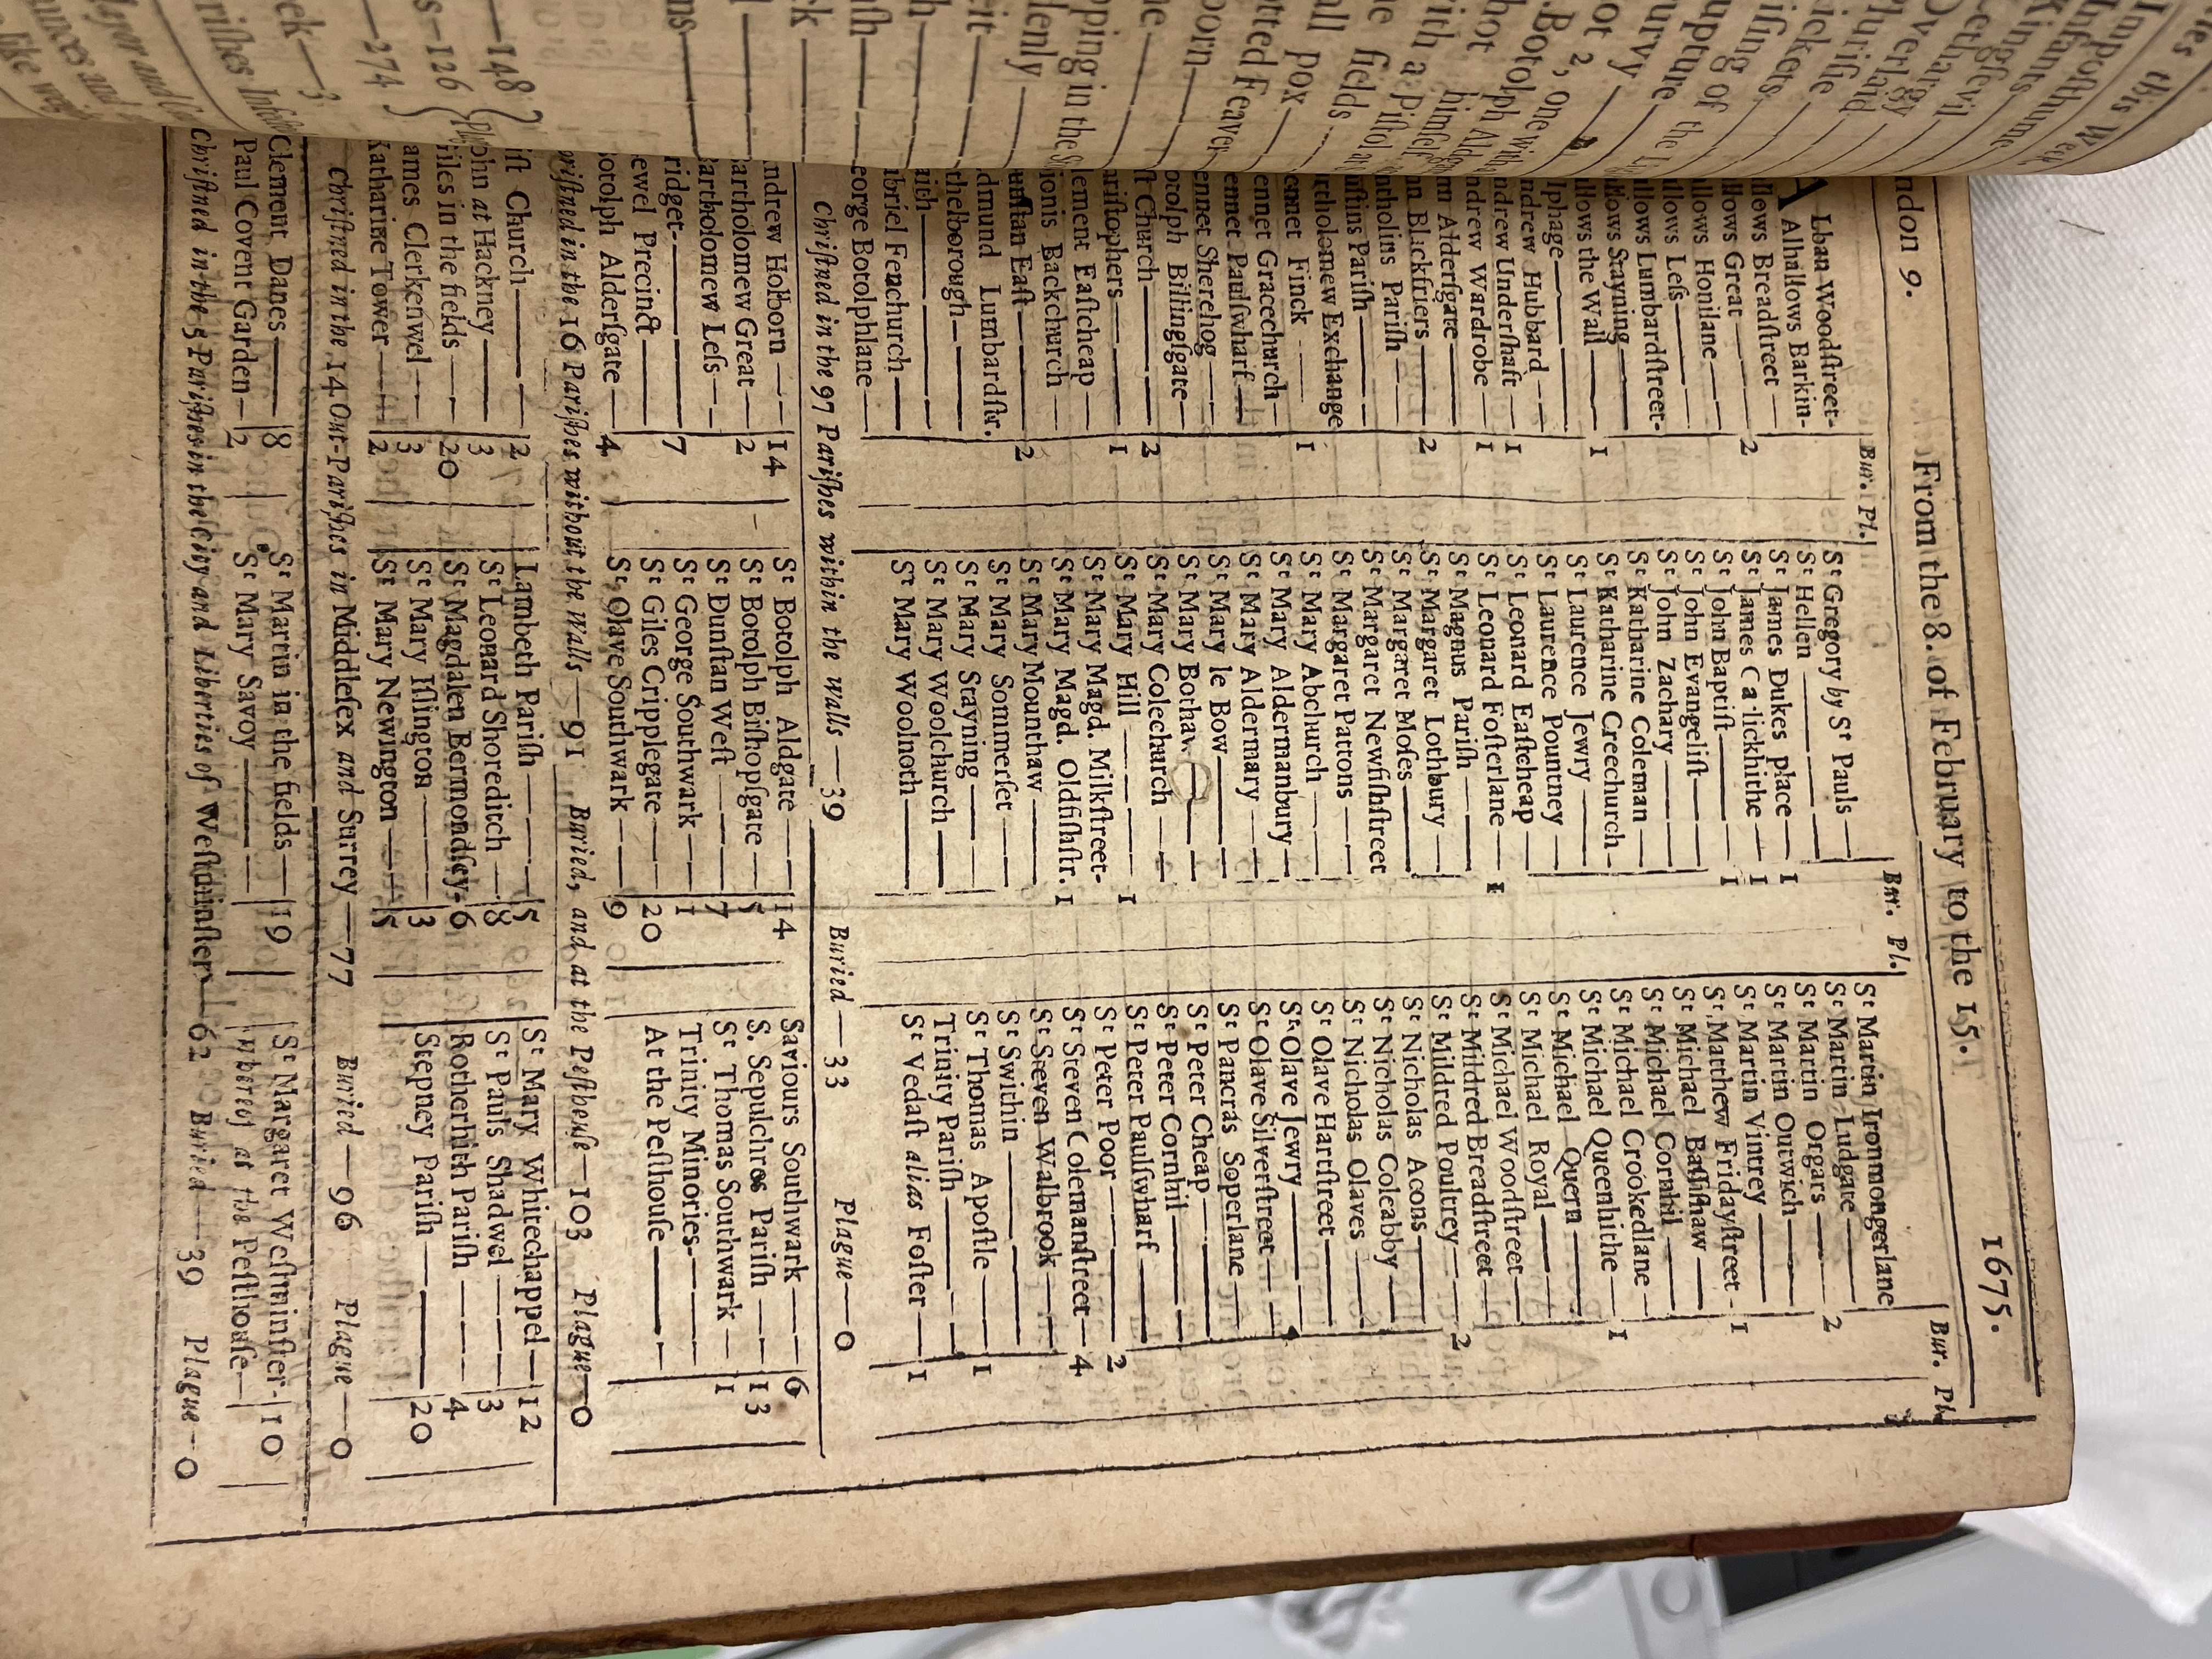 ndon 9. From the 8. of February to the 15. 1675.
Bur. Pl. Bur. Pl. Bur. Pl.
A Lban Woodſtreet-
Alhallows Barkin-
llows Breadſtreet —
llows Great — 2
llows Honilane —
llows Leſs —
llows Lumbardſtreet-
llows Stayning —
llows the Wall — 1
lphage —
ndrew Hubbard —
ndrew Underſhaft — 1
ndrew Wardrobe — 1
nn Alderſgate —
nn Blackfriers — 2
ntholins Pariſh —
uſtins Pariſh —
rtholomew Exchange
ennet Finck — 1
ennet Gracechurch —
ennet Paulſwharf —
ennet Sherehog —
otolph Billingſgate —
ſt Church — 2
riſtophers — 1
lement Eaſtcheap —
ionis Backchurch —
unſtan Eaſt — 2
dmund Lumbardſtr.
thelborough —
aith —
ibriel Fenchurch —
eorge Botolphlane —
Sᵗ Gregory by Sᵗ Pauls —
Sᵗ Hellen —
Sᵗ James Dukes place — 1
Sᵗ James Ga lickhithe — 1
Sᵗ John Baptiſt — 1
Sᵗ John Evangeliſt —
Sᵗ John Zachary —
Sᵗ Katharine Coleman —
Sᵗ Katharine Creechurch —
Sᵗ Laurence Jewry —
Sᵗ Laurence Pountney —
Sᵗ Leonard Eaſtcheap —
Sᵗ Leonard Foſterlane — 1
Sᵗ Magnus Pariſh —
Sᵗ Margaret Lothbury —
Sᵗ Margaret Moſes —
Sᵗ Margaret Newfiſhſtreet
Sᵗ Margaret Pattons —
Sᵗ Mary Abchurch —
Sᵗ Mary Aldermanbury —
Sᵗ Mary Aldermary —
Sᵗ Mary le Bow —
Sᵗ Mary Bothaw —
Sᵗ Mary Colechurch —
Sᵗ Mary Hill — 1
Sᵗ Mary Magd. Milkſtreet-
Sᵗ Mary Magd. Oldfiſhſtr. 1
Sᵗ Mary Mounthaw —
Sᵗ Mary Sommerſet —
Sᵗ Mary Stayning —
Sᵗ Mary Woolchurch —
Sᵗ Mary Woolnoth —
Sᵗ Martin Ironmongerlane
Sᵗ Martin Ludgate —
Sᵗ Martin Orgars — 2
Sᵗ Martin Outwich —
Sᵗ Martin Vintrey —
Sᵗ Matthew Fridayſtreet - 1
Sᵗ Michael Baſſiſhaw —
Sᵗ Michael Cornhil —
Sᵗ Michael Crookedlane —
Sᵗ Michael Queenhithe — 1
Sᵗ Michael Quern —
Sᵗ Michael Royal —
Sᵗ Michael Woodſtreet —
Sᵗ Mildred Breadſtreet —
Sᵗ Mildred Poultrey — 2
Sᵗ Nicholas Acons —
Sᵗ Nicholas Coleabby —
Sᵗ Nicholas Olaves —
Sᵗ Olave Hartſtreet —
Sᵗ Olave Jewry —
Sᵗ Olave Silverſtreet —
Sᵗ Pancras Soperlane —
Sᵗ Peter Cheap —
Sᵗ Peter Cornhil —
Sᵗ Peter Paulſwharf —
Sᵗ Peter Poor — 2
Sᵗ Steven Colemanſtreet — 4
Sᵗ Steven Walbrook —
Sᵗ Swithin —
Sᵗ Thomas Apoſtle — 1
Trinity Pariſh —
Sᵗ Vedaſt alias Foſter — 1
Chriſtned in the 97 Pariſhes within the walls — 39 Buried — 33 Plague — 0
ndrew Holborn — 14
artholomew Great — 2
artholomew Leſs —
ridget — 7
ewel Precinct —
otolph Alderſgate — 4
Sᵗ Botolph Aldgate — 14
Sᵗ Botolph Biſhopſgate — 5
Sᵗ Dunſtan Weſt — 7
Sᵗ George Southwark — 1
Sᵗ Giles Cripplegate — 20
Sᵗ Olave Southwark — 9
Saviours Southwark — 6
S. Sepulchres Pariſh — 13
Sᵗ Thomas Southwark — 1
Trinity Minories —
At the Peſthouſe —
riſtned in the 16 Pariſhes without the Walls — 91 Buried, and at the Peſthouſe — 103 Plague — 0
iſt Church — 2
ohn at Hackney — 3
iles in the fields — 20
ames Clerkenwel — 3
Katharine Tower — 2
Lambeth Pariſh — 5
Sᵗ Leonard Shoreditch — 8
Sᵗ Magdalen Bermondſey - 6
Sᵗ Mary Iſlington — 3
Sᵗ Mary Newington — 5
Sᵗ Mary Whitechappel — 12
Sᵗ Pauls Shadwel — 3
Rotherhith Pariſh — 4
Stepney Pariſh — 20
Chriſtned in the 14 Out-Pariſhes in Middleſex and Surrey — 77 Buried — 96 Plague — 0
Clement Danes — 8
Paul Covent Garden — 2
Sᵗ Martin in the fields — 19
Sᵗ Mary Savoy —
Sᵗ Margaret Weſtminſter - 10
at the Peſthouſe —
Chriſtned in the 5 Pariſhes in the City and Liberties of Weſtminſter — 62 Buried — 39 Plague — 0
ies this Week
Impoſthume
Infants
Kingſevil
Lethargy
Overlaid
Pluriſie
Rickets
iſing of the
upture
urvy
ot 2, one with
Botolph Alde
hoot himſelf
with a Piſtol at
he fields
all pox
otted Feaver
born
ne
pping in the
denly
eit
h
uſh
ck
ns
—148
s—126
—274
eck—3
riſhes Infe
Mayor and
ounces and
like